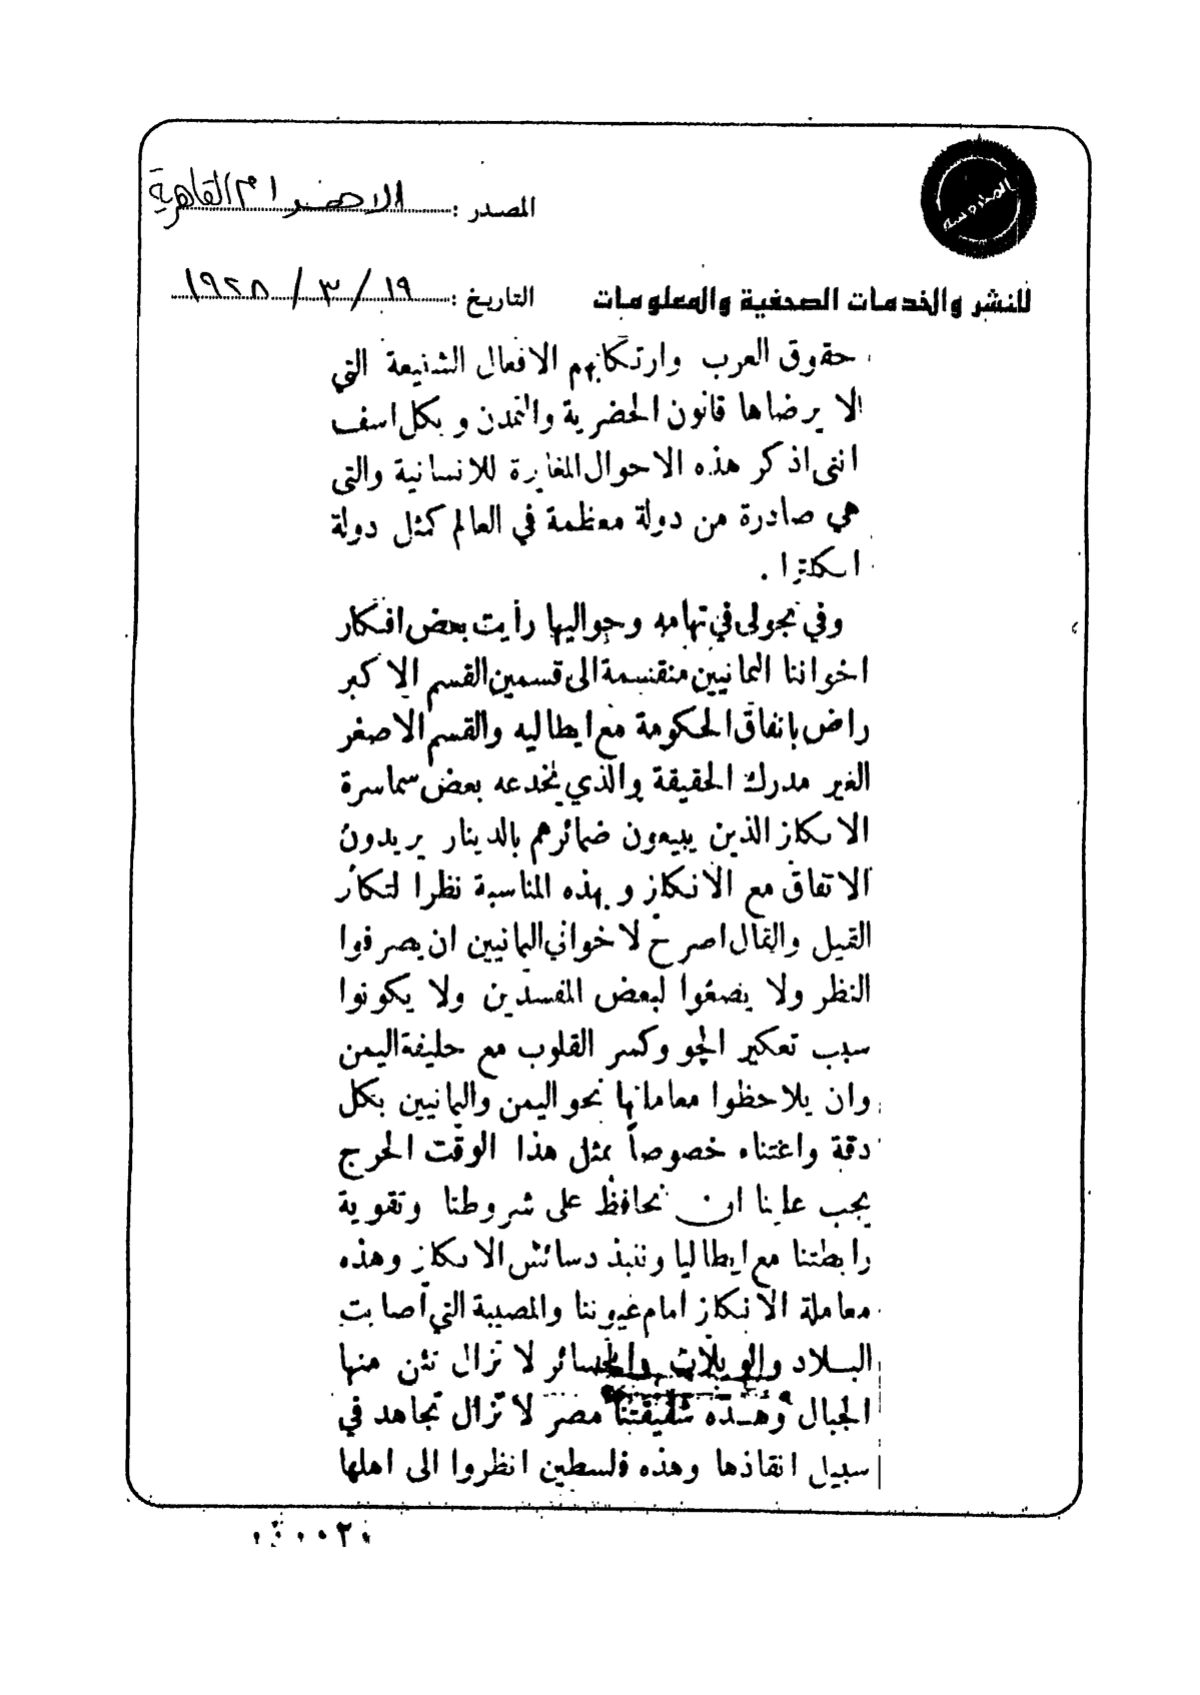 المصدر : الاهرام القاهرية
التاريخ : ١٩ / ٣ / ١٩٢٨
للنشر والخدمات الصحفية والمعلومات
حقوق العرب وارتكابهم الافعال الشنيعة التي
لا يرضاها قانون الحضرية والتمدن وبكل اسف
اننى اذكر هذه الاحوال المغايرة للانسانية والتى
هي صادرة من دولة معظمة في العالم كمثل دولة
انكلترا .
وفي تجولى في تهامه وحواليها رأيت بعض افكار
اخواننا اليمانيين منقسمة الى قسمين القسم الاكبر
راض باتفاق الحكومة مع ايطاليه والقسم الاصغر
الغير مدرك الحقيقة والذي يخدعه بعض سماسرة
الانكليز الذين يبيعون ضمائرهم بالدينار يريدون
الاتفاق مع الانكليز وبهذه المناسبة نظرا لتكار
القيل والقال اصرح لاخواني اليمانيين ان يصرفوا
النظر ولا يصغوا لبعض المفسدين ولا يكونوا
سبب تعكير الجو وكسر القلوب مع حليفة اليمن
وان يلاحظوا معاملتها نحو اليمن واليمانيين بكل
دقة واعتناء خصوصاً بمثل هذا الوقت الحرج
يجب علينا ان نحافظ على شروطنا وتقوية
رابطتنا مع ايطاليا وننبذ دسائس الانكليز وهذه
معاملة الانكليز امام عيوننا والمصيبة التي اصابت
البلاد والويلات والخسائر لا تزال تئن منها
الجبال وهذه شقيقتنا مصر لا تزال تجاهد في
سبيل انقاذها وهذه فلسطين انظروا الى اهلها